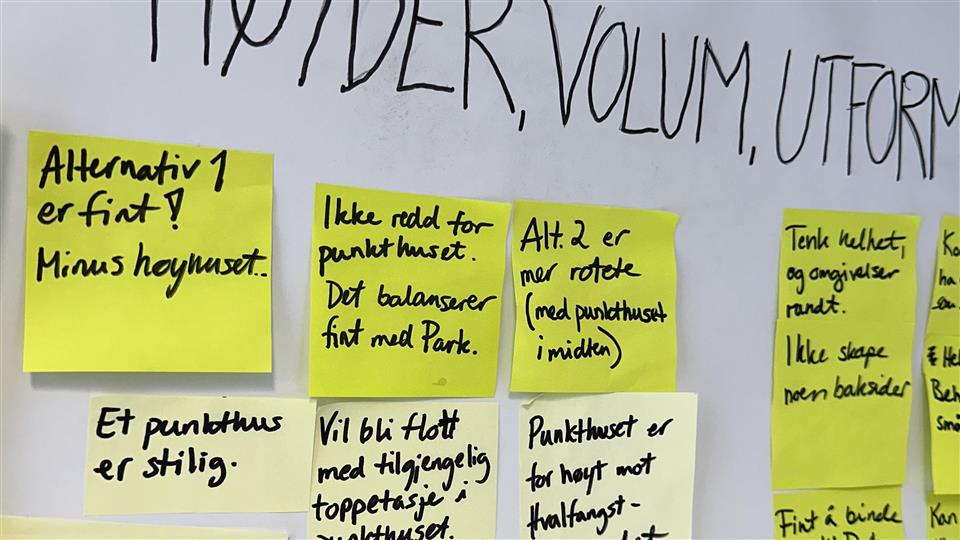 HØYDER, VOLUM, UTFORM
Alternativ 1
er fint!
Minus høyhuset..
Ikke redd for
punkthuset.
Det balanserer
fint med Park.
Alt. 2 er
mer rotete
(med punkthuset
i midten)
Tenk helhet,
og omgivelser
rundt.
Ikke skape
noen baksider
Ko
ha
en.
Hel
Beh
små
Et punkthus
er stilig.
Vil bli flott
med tilgjengelig
toppetasje i
punkthuset.
Punkthuset er
for høyt mot
Hvalfangst-
Fint å binde
Kan